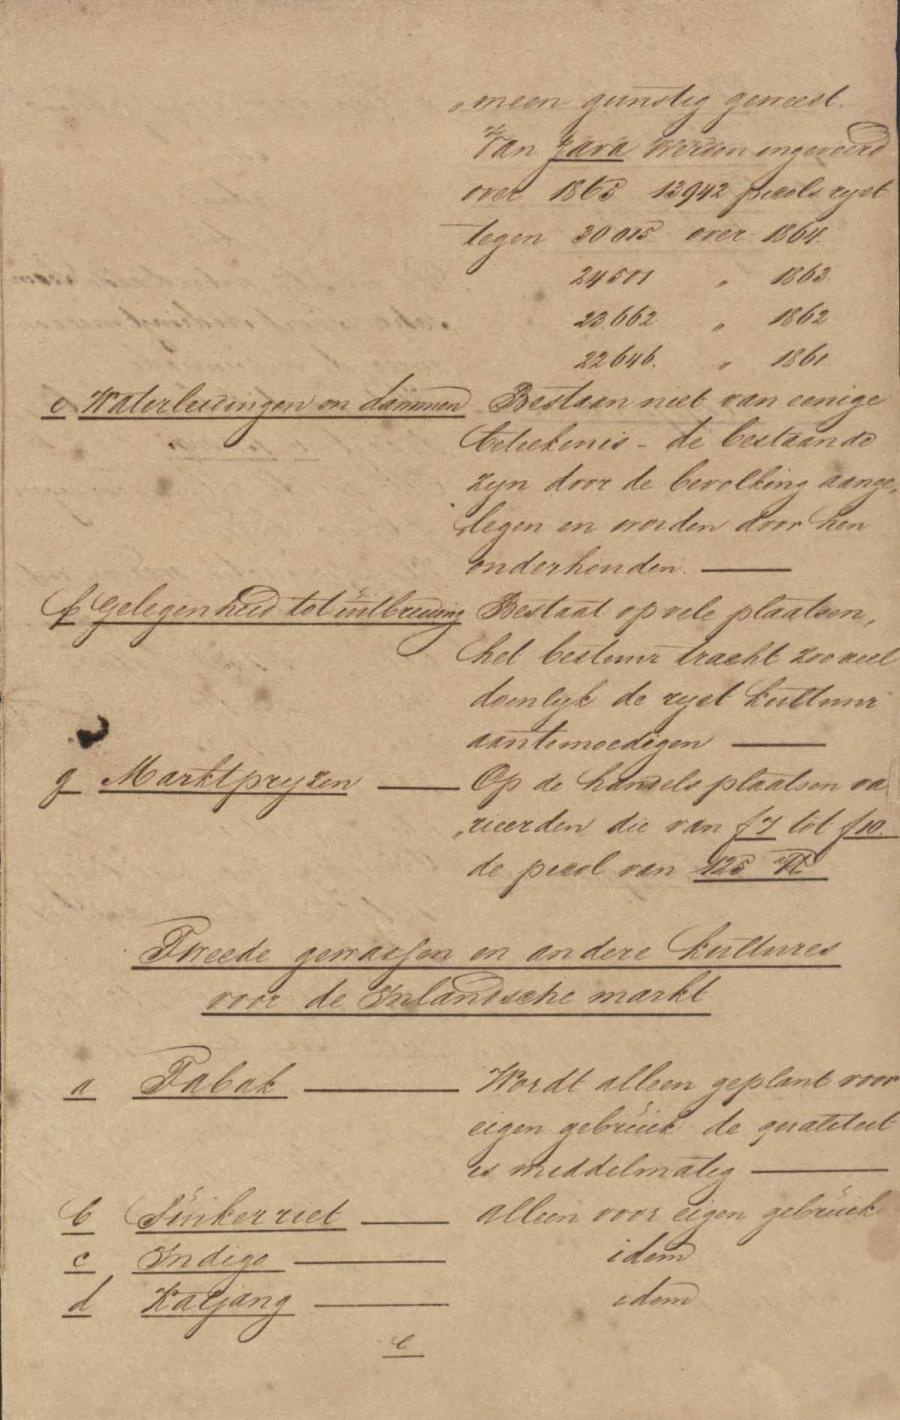 „meen gunstig geweest.
Van Java werden ingevoerd
over 1865 13942 picols rijst
tegen 30015 over 1864.
24501 „ 1863
23662 „ 1862
22646. „ 1861.
e Waterleidingen en dammen Bestaan niet van eenige
beteekenis – de bestaande
zijn door de bevolking aange„
„legen en worden door hen
onderhouden. —
f Gelegenheid tot uitbreiding Bestaat op vele plaatsen,
het bestuur tracht zooveel
doenlijk de rijst kultuur
aantemoedigen —
g Marktprijzen — Op de handelsplaatsen va
„rieerden die van f 7 tot f 10.
de picol van 125 ℔
Tweede gewassen en andere kultures
voor de Inlandsche markt
a Tabak — Wordt alleen geplant voor
eigen gebruik de qualiteit
is middelmatig —
b Suikerriet — alleen voor eigen gebruik
c Indigo — idem
d Katjang — idem
e